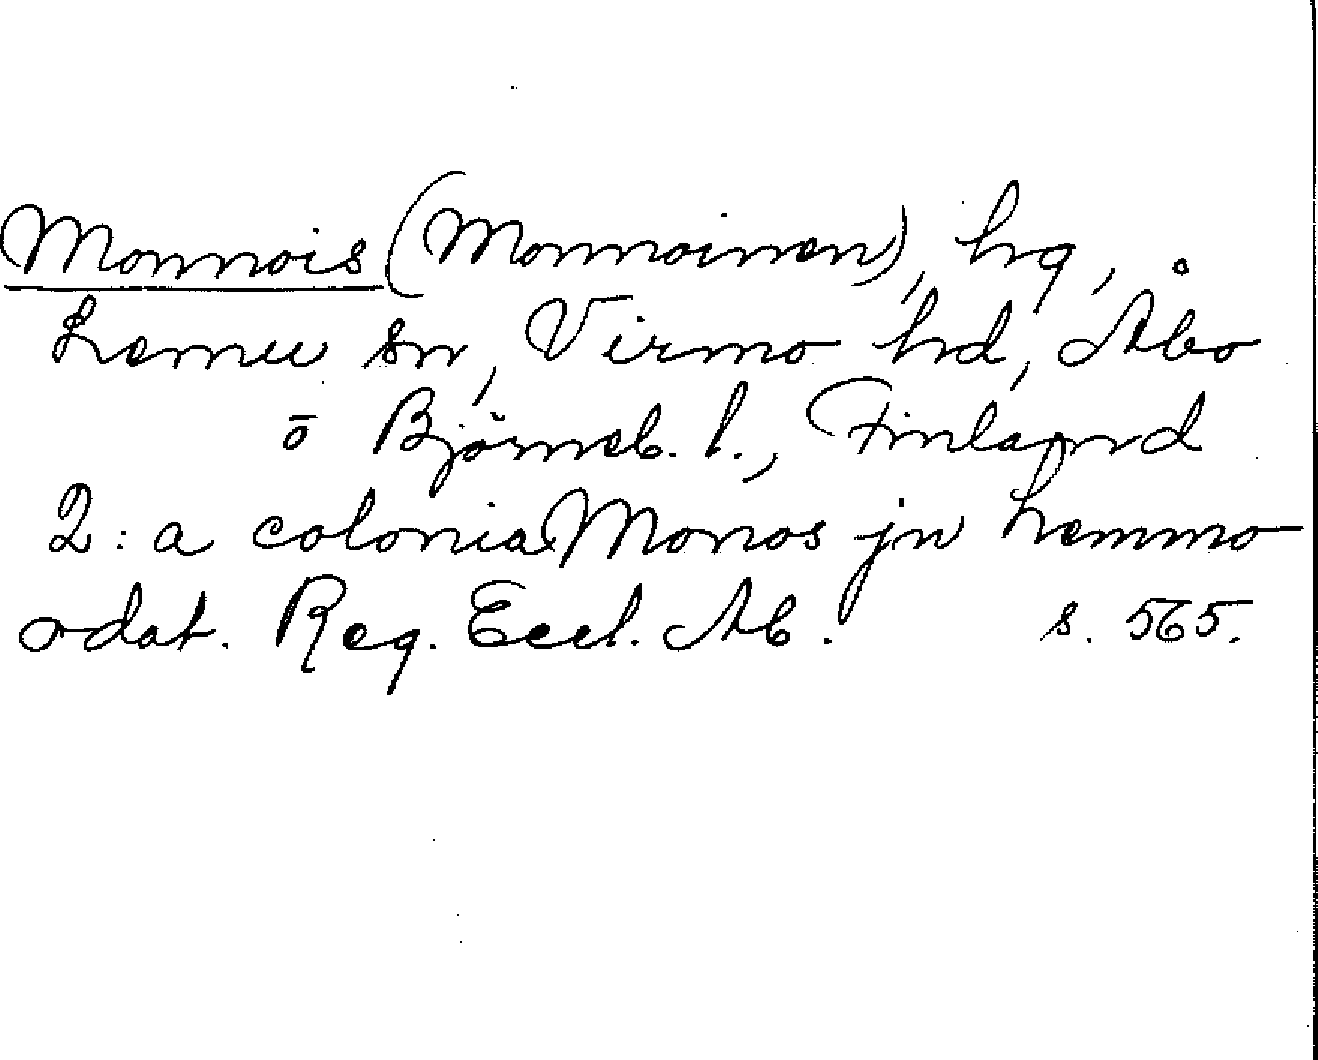 Monnois (Monnoinen), hg,
Lemu sn, Virmo hd, Åbo
o Björneb. l., Finland
2: a colonia Monos jn Lemmo
odat. Reg. Eccl. Ab. s. 565.